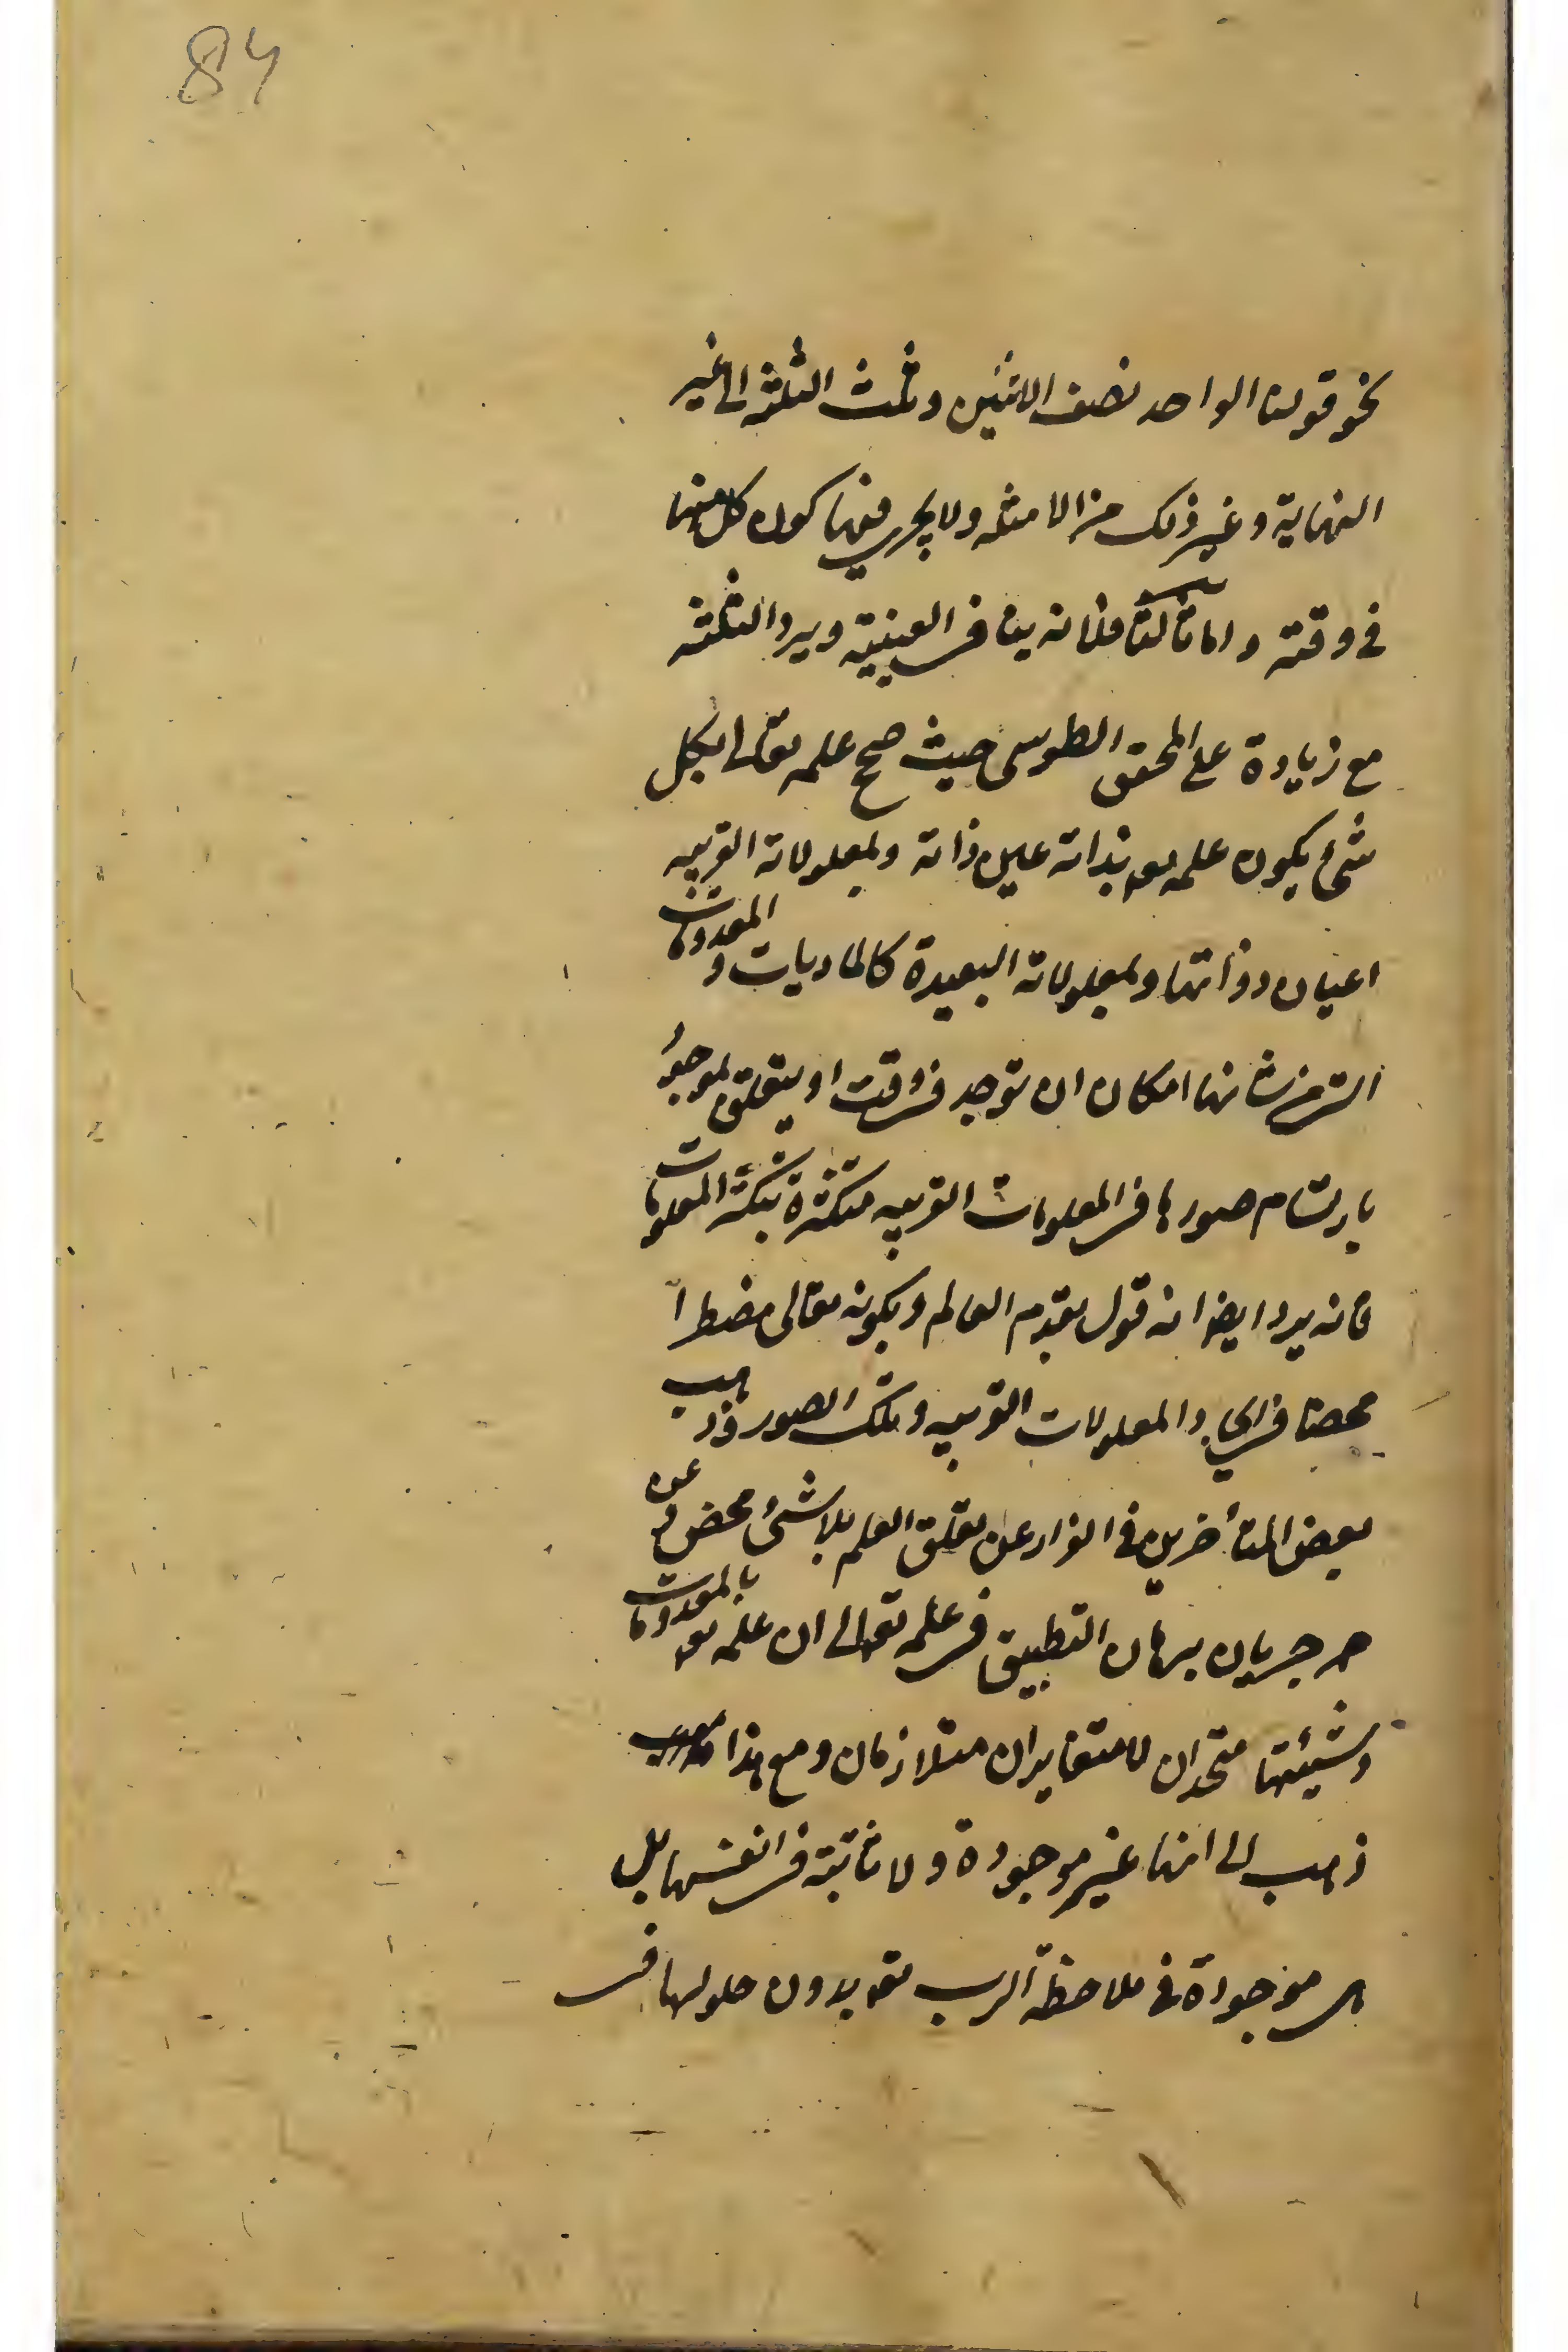 84
نحو قولنا الواحد نصف الاثنين وثلث الثلثة الى غير
النهاية وغير ذلك من الامثلة ولا يجري فيها كون كل منها
في وقته واما ثالثا فلانه ينافي العينية ويرد الثلثة
مع زيادة على المحقق الطوسي حيث صح علمه تعالى بكل
شئ بكون علمه تع بذاته عين ذاته وبمعلولاته القريبة
اعيان ذواتها وبمعلولاته البعيدة كالماديات والمعدومات
التي من شانها امكان ان توجد في وقت او يتعلق بموجود
بارتسام صورها في المعلولات القريبة متكثرة بتكثر المعلومات
فانه يرد ايضا انه قول بقدم العالم وبكونه تعالى مضطرا
محضا في ايجاد المعلولات القريبة وتلك الصور وذهب
بعض المتأخرين في الفرار عن تعلق العلم بلا شئ محض وعن
جريان برهان التطبيق في علمه تعالى ان علمه تع بالمعدومات
وشيئتها متحدان لا متغايران متلازمان ومع هذا
ذهب الى انها غير موجودة ولا ثابتة في انفسها بل
هي موجودة في ملاحظة الرب تع بدون حلولها في